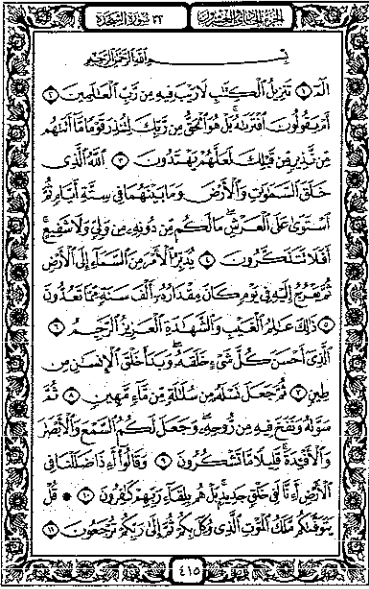 الجزء الحادي والعشرون ٣٢ سورة السجدة
بسم الله الرحمن الرحيم
الٓمٓ ١ تَنزِيلُ ٱلۡكِتَٰبِ لَا رَيۡبَ فِيهِ مِن رَّبِّ ٱلۡعَٰلَمِينَ ٢
أَمۡ يَقُولُونَ ٱفۡتَرَىٰهُۚ بَلۡ هُوَ ٱلۡحَقُّ مِن رَّبِّكَ لِتُنذِرَ قَوۡمٗا مَّآ أَتَىٰهُم
مِّن نَّذِيرٖ مِّن قَبۡلِكَ لَعَلَّهُمۡ يَهۡتَدُونَ ٣ ٱللَّهُ ٱلَّذِي
خَلَقَ ٱلسَّمَٰوَٰتِ وَٱلۡأَرۡضَ وَمَا بَيۡنَهُمَا فِي سِتَّةِ أَيَّامٖ ثُمَّ
ٱسۡتَوَىٰ عَلَى ٱلۡعَرۡشِۖ مَا لَكُم مِّن دُونِهِۦ مِن وَلِيّٖ وَلَا شَفِيعٍۚ
أَفَلَا تَتَذَكَّرُونَ ٤ يُدَبِّرُ ٱلۡأَمۡرَ مِنَ ٱلسَّمَآءِ إِلَى ٱلۡأَرۡضِ
ثُمَّ يَعۡرُجُ إِلَيۡهِ فِي يَوۡمٖ كَانَ مِقۡدَارُهُۥٓ أَلۡفَ سَنَةٖ مِّمَّا تَعُدُّونَ
٥ ذَٰلِكَ عَٰلِمُ ٱلۡغَيۡبِ وَٱلشَّهَٰدَةِ ٱلۡعَزِيزُ ٱلرَّحِيمُ ٦
ٱلَّذِيٓ أَحۡسَنَ كُلَّ شَيۡءٍ خَلَقَهُۥۖ وَبَدَأَ خَلۡقَ ٱلۡإِنسَٰنِ مِن
طِينٖ ٧ ثُمَّ جَعَلَ نَسۡلَهُۥ مِن سُلَٰلَةٖ مِّن مَّآءٖ مَّهِينٖ ٨ ثُمَّ
سَوَّىٰهُ وَنَفَخَ فِيهِ مِن رُّوحِهِۦۖ وَجَعَلَ لَكُمُ ٱلسَّمۡعَ وَٱلۡأَبۡصَٰرَ
وَٱلۡأَفۡـِٔدَةَۚ قَلِيلٗا مَّا تَشۡكُرُونَ ٩ وَقَالُوٓاْ أَءِذَا ضَلَلۡنَا فِي
ٱلۡأَرۡضِ أَءِنَّا لَفِي خَلۡقٖ جَدِيدِۭۚ بَلۡ هُم بِلِقَآءِ رَبِّهِمۡ كَٰفِرُونَ ١٠ ۞ قُلۡ
يَتَوَفَّىٰكُم مَّلَكُ ٱلۡمَوۡتِ ٱلَّذِي وُكِّلَ بِكُمۡ ثُمَّ إِلَىٰ رَبِّكُمۡ تُرۡجَعُونَ ١١
٤١٥